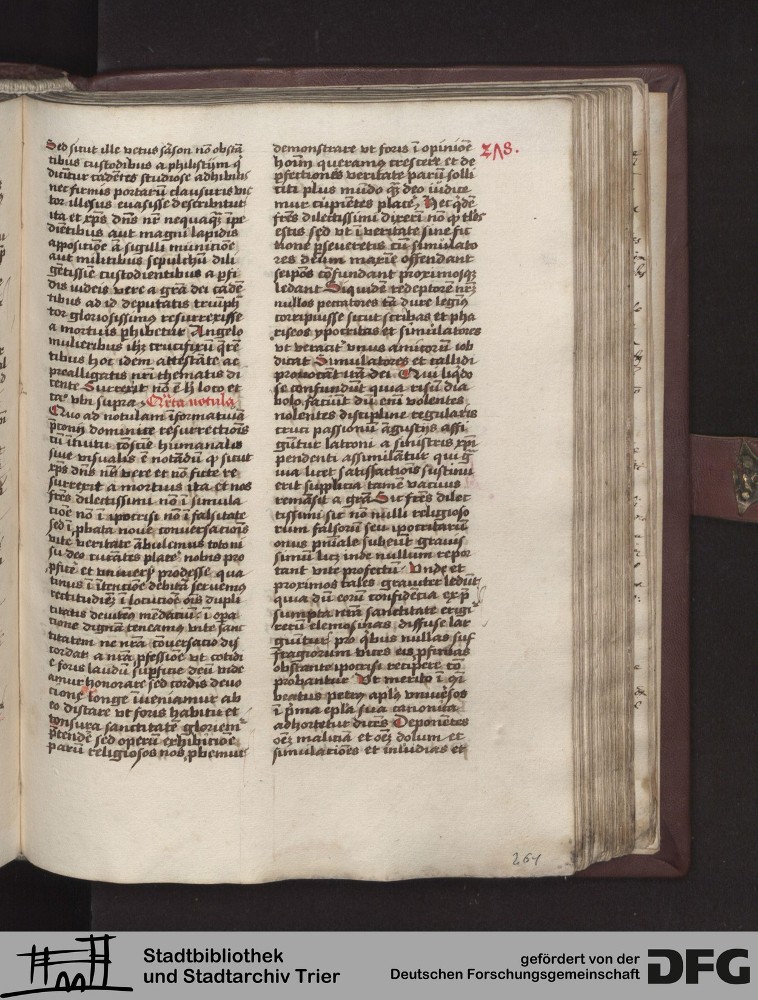 Sed sicut ille vetus sāson nō obstā
tibus custodibus a philistijm q̇
dicūtur cadētes studiose adhibitis
nec firmis portarū clausuris vic
tor illesus euasisse describitur
ita et xp̄s dn̄s nr̄ nequaq̄ ī
dientibus aut magni lapidis
appositiōe ā sigilli munitiōe
aut militibus sepulchrū dili
gētissiē custodientibus a
dis iudeis vere a grā dei cadē
tibus ad id deputatis triūph
tor gloriosissimus resurrexisse
a mortuis phibetur Angelo
mulieribus ihm̄ crucifixū q̄rē
tibus hoc idem attestāte ac
prealligatis nr̄i thematis di
cente Surrexit nō ē h̄ loco et
ca vbi supra Qr̄ta notula
Quo ad notulam īformatiuā
pconij dominice resurrectiōis
cū īnuitu cōscie humanalis
siue visualis ē notādū q̇ sicut
xp̄s dn̄s nr̄ vere et nō ficte re
surrexit a mortuis ita et nos
fr̄es dilectissimi nō ī simula
tiōe nō ī ipocrisi nō ī falsitate
sed ī pbata noue conuersaciōis
vite veritate ābulemus toto ni
su deo curātes place nobis pro
et vniuers prodesse qua
tinus ī ītēcioē debitā seruemus
rectitudiēz ī locucioē oīs dupli
citatis deuitem9 mēdaciū ī opa
cione dignā teneamus vite sanc
titatem ne nr̄a cōuersacio dis
cordat a nr̄a pfessiōe vt cotidi
e foris laudū supficie deū vide
amur honorare sed cordis deuo
cione longe īueniamur ab
eo distare vt foris habitu et
tonsura sanctitatē gloriem
p̄tende sed operū exhibitioē
parū religiosos nos pbemus
demonstrare vt foris ī opinioē
hoīm queramus crescere et de
pfectiōes veritate parū solli
citi plus mūdo q̄ deo iudice
mur cupiētes place Hec q̄dē
fr̄es dilectissimi dixeri nō q̇ tles
estis sed vt ī veritate sine fic
tione pseueretis cū simulato
res deum maxīe offendant
seipōs cōfundant proximosqz
ledant Siquidē redēptorē nr̄z
nullos peccatores tā dure legim9
corripuisse sicut scribas et pha
riseos ypocritas et simulatores
vt veracit vnus amicorū iob
dicat Simulatores et callidi
prouocāt irā dei Qui liq̇do
se confundūt quia risū dia
bolo faciūt dū eni volentes
nolentes discipline regularis
cruci passionū āgustijs affi
gūtur latroni a sinistris xp̄i
pendenti assimilātur qui q̄
uia licet satisfactiōis sustinu
erit supplicia tamē vacuus
remāsit a grā Sic fr̄es dilec
tissimi sic nō nulli religioso
rum falsorū seu ipocritarū
onus pn̄iale subeūt grauis
simū licz inde nullum repor
tant vite profectū Vnde et
proximos tales grauiter ledūt
quia dū eorū confidēcia ex p̄
sumpta nr̄a sanctitate erigi
rerū elemosinas diffuse lar
giūtur pro q̇bus nullas suf
fragiorum vices eis pfinas
obstante ipocrisi recipere cō
probantur Vt merito ī qr̄
beatus petrus apl̄s vniuēsos
ī p̄ma epl̄a sua canonica
adhortetur dicēs Deponētes
oēz maliciā et oēz dolum et
simulatiōes et inuidias et
218.
264
Stadtbibliothek
und Stadtarchiv Trier
gefördert von der
Deutschen Forschungsgemeinschaft
DFG